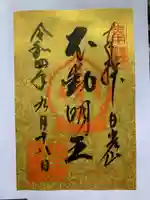 奉拝 日光山
不動明王
令和四年九月十八日